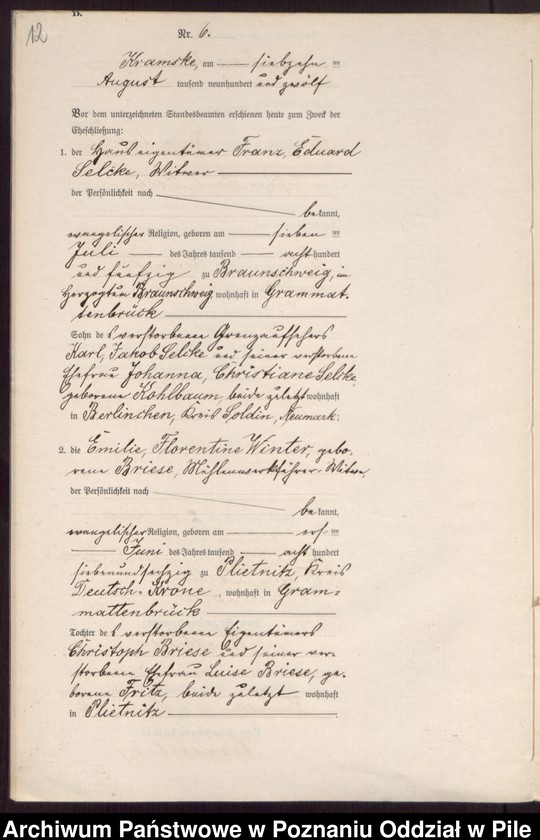 12
B.
Nr. 6.
Kramske, am siebzehn ten
August tausend neunhundert und zwölf
Vor dem unterzeichneten Standesbeamten erschienen heute zum Zweck der
Eheschließung:
1. der Hauseigentümer Franz, Eduard
Selcke, Witwer
der Persönlichkeit nach
bekannt,
evangelischer Religion, geboren am sieben ten
Juli des Jahres tausend acht hundert
und fünfzig zu Braunschweig, in
Herzogtum Braunschweig wohnhaft in Grammat-
tenbrück
Sohn des verstorbenen Grenzaufsehers
Karl, Jakob Selcke und seiner verstorbenen
Ehefrau Johanna, Christiane Selcke,
geborene Kohlbaum, beide zuletzt wohnhaft
in Berlinchen, Kreis Soldin, Neumark.
2. die Emilie, Florentine Winter, gebo-
rene Briese, Mühlenwerkführer-Witwe,
der Persönlichkeit nach
bekannt,
evangelischer Religion, geboren am ers ten
Juni des Jahres tausend acht hundert
siebenundsechzig zu Plietnitz, Kreis
Deutsch-Krone, wohnhaft in Gram-
mattenbrück
Tochter des verstorbenen Eigentümers
Christoph Briese und seiner ver-
storbenen Ehefrau Luise Briese, ge-
borene Fritz, beide zuletzt wohnhaft
in Plietnitz
Archiwum Państwowe w Poznaniu Oddział w Pile